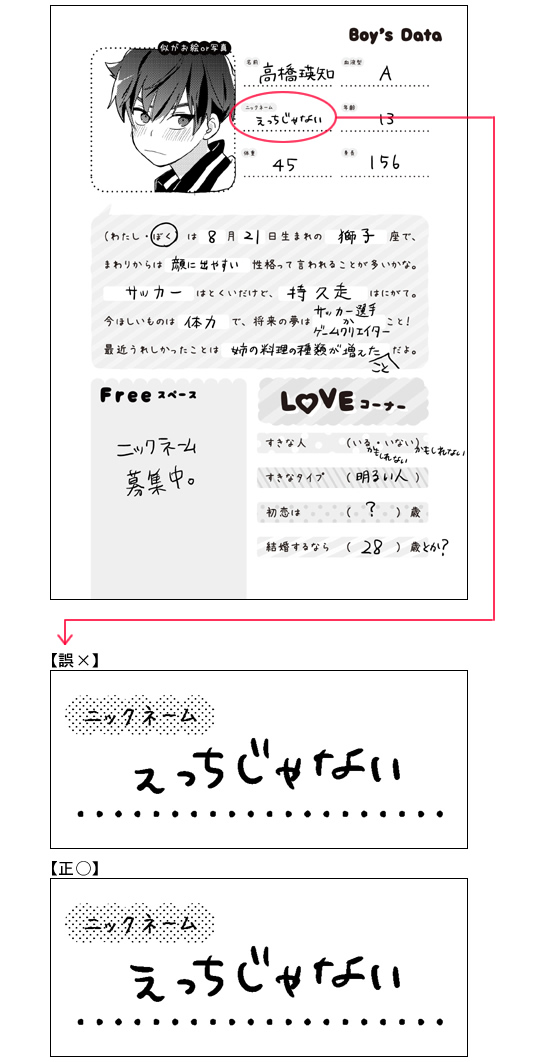 Boy's Data
似がお絵or写真
名前 高橋瑛知 血液型 A
ニックネーム えっちじゃない 年齢 13
体重 45 身長 156
(わたし・ぼく) は 8 月 21 日生まれの 獅子 座で、
まわりからは 顔に出やすい 性格って言われることが多いかな。
サッカー はとくいだけど、 持久走 はにがて。
今ほしいものは 体力 で、将来の夢は サッカー選手 か ゲームクリエイター こと!
最近うれしかったことは 姉の料理の種類が増えた こと だよ。
Free スペース
ニックネーム
募集中。
LOVE コーナー
すきな人 (いる・いない)
かもしれない かもしれない
すきなタイプ ( 明るい人 )
初恋は ( ? ) 歳
結婚するなら ( 28 ) 歳とか?
【誤×】
ニックネーム
えっちじゃない
【正○】
ニックネーム
えっちじゃない